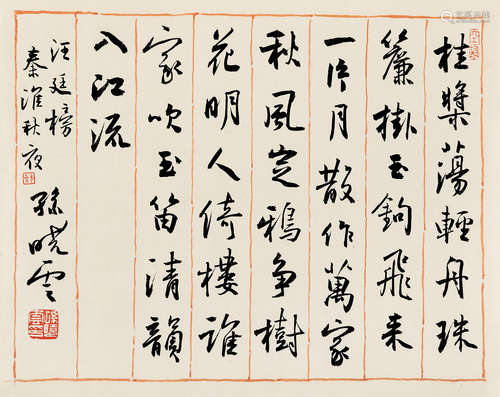 桂槳蕩輕舟珠
簾掛玉鉤飛来
一片月散作萬家
秋風定鴉争樹
花明人倚樓誰
家吹玉笛清韻
入江流
汪廷榜
秦淮秋夜
孫曉雲